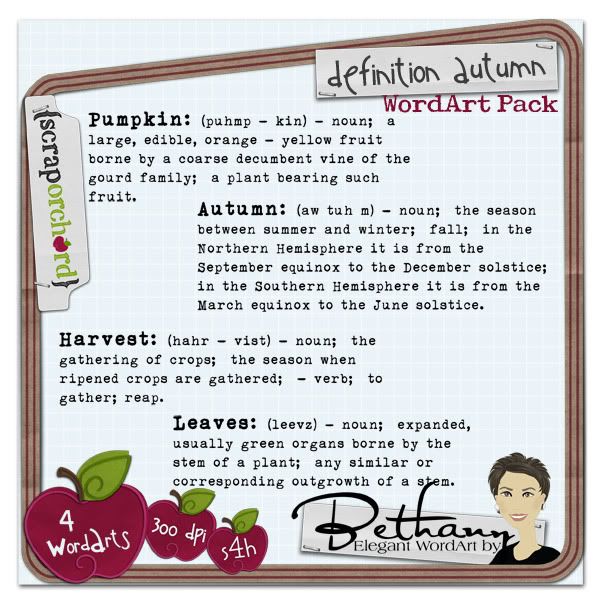 definition autumn
WordArt Pack
{scraporchard}
Pumpkin: (puhmp - kin) - noun; a
large, edible, orange - yellow fruit
borne by a coarse decumbent vine of the
gourd family; a plant bearing such
fruit.
Autumn: (aw tuh m) - noun; the season
between summer and winter; fall; in the
Northern Hemisphere it is from the
September equinox to the December solstice;
in the Southern Hemisphere it is from the
March equinox to the June solstice.
Harvest: (hahr - vist) - noun; the
gathering of crops; the season when
ripened crops are gathered; - verb; to
gather; reap.
Leaves: (leevz) - noun; expanded,
usually green organs borne by the
stem of a plant; any similar or
corresponding outgrowth of a stem.
4
WordArts
300 dpi
s4h
Bethany
Elegant WordArt by